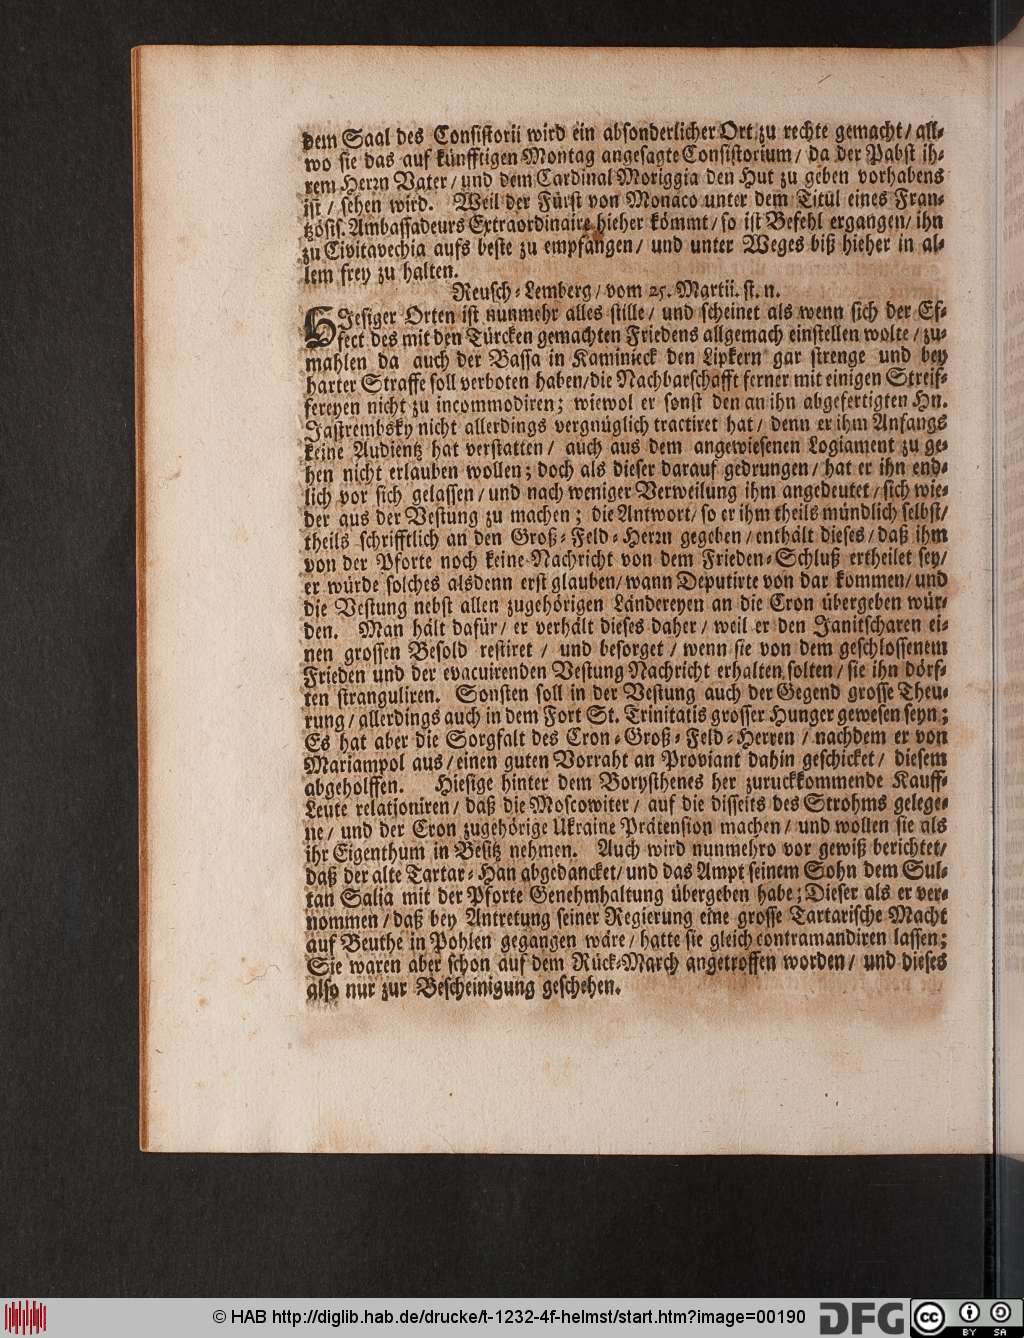 dem Saal des Consistorii wird ein absonderlicher Ort zu rechte gemacht/ all-
wo sie das auf künfftigen Montag angesagte Consistorium/ da der Pabst ih-
rem Herrn Vater/ und dem Cardinal Moriggia den Hut zu geben vorhabens
ist/ sehen wird. Weil der Fürst von Monaco unter dem Titul eines Fran-
tzösis. Ambassadeurs Extraordinaire hieher kömmt/ so ist Befehl ergangen/ ihn
zu Civitavechia aufs beste zu empfangen/ und unter Weges biß hieher in al-
lem frey zu halten.
Reusch-Lemberg/ vom 25. Martii. st. n.
HJesiger Orten ist nunmehr alles stille/ und scheinet als wenn sich der Ef-
fect des mit den Türcken gemachten Friedens allgemach einstellen wolte/ zu-
mahlen da auch der Bassa in Kaminieck den Lipkern gar strenge und bey
harter Straffe soll verboten haben/ die Nachbarschafft ferner mit einigen Streif-
fereyen nicht zu incommodiren; wiewol er sonst den an ihn abgefertigten Hn.
Jastrembsky nicht allerdings vergnüglich tractiret hat/ denn er ihm Anfangs
keine Audientz hat verstatten/ auch aus dem angewiesenen Logiament zu ge-
hen nicht erlauben wollen; doch als dieser darauf gedrungen/ hat er ihn end-
lich vor sich gelassen/ und nach weniger Verweilung ihm angedeutet/ sich wie-
der aus der Vestung zu machen; die Antwort/ so er ihm theils mündlich selbst/
theils schrifftlich an den Groß-Feld-Herrn gegeben/ enthält dieses/ daß ihm
von der Pforte noch keine Nachricht von dem Frieden-Schluß ertheilet sey/
er würde solches alsdenn erst glauben/ wann Deputirte von dar kommen/ und
die Vestung nebst allen zugehörigen Ländereyen an die Cron übergeben wür-
den. Man hält dafür/ er verhält dieses daher/ weil er den Janitscharen ei-
nen grossen Besold restiret/ und besorget/ wenn sie von dem geschlossenem
Frieden und der evacuirenden Vestung Nachricht erhalten solten/ sie ihn dörf-
ten stranguliren. Sonsten soll in der Vestung auch der Gegend grosse Theu-
rung/ allerdings auch in dem Fort St. Trinitatis grosser Hunger gewesen seyn;
Es hat aber die Sorgfalt des Cron-Groß-Feld-Herren/ nachdem er von
Mariampol aus/ einen guten Vorraht an Proviant dahin geschicket/ diesem
abgeholffen. Hiesige hinter dem Borysthenes her zuruckkommende Kauff-
Leute relationiren/ daß die Moscowiter/ auf die disseits des Strohms gelege-
ne/ und der Cron zugehörige Ukraine Prätension machen/ und wollen sie als
ihr Eigenthum in Besitz nehmen. Auch wird nunmehro vor gewiß berichtet/
daß der alte Tartar-Han abgedancket/ und das Ampt seinem Sohn dem Sul-
tan Salia mit der Pforte Genehmhaltung übergeben habe; Dieser als er ver-
nommen/ daß bey Antretung seiner Regierung eine grosse Tartarische Macht
auf Beuthe in Pohlen gegangen wäre/ hatte sie gleich contramandiren lassen;
Sie waren aber schon auf dem Rück-March angetroffen worden/ und dieses
also nur zur Bescheinigung geschehen.
© HAB http://diglib.hab.de/drucke/t-1232-4f-helmst/start.htm?image=00190
DFG
cc
BY SA